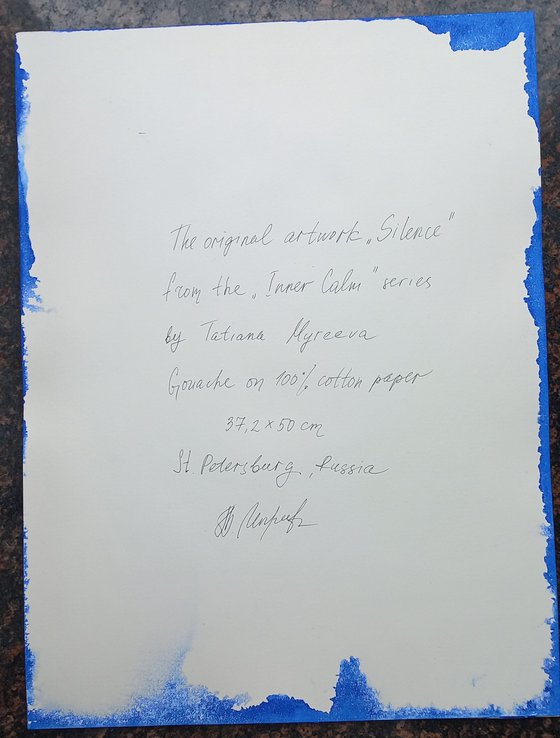 The original artwork „Silence"
from the „Inner Calm" series
by Tatiana Myreeva
Gouache on 100% cotton paper
37,2 x 50 cm
St. Petersburg, Russia